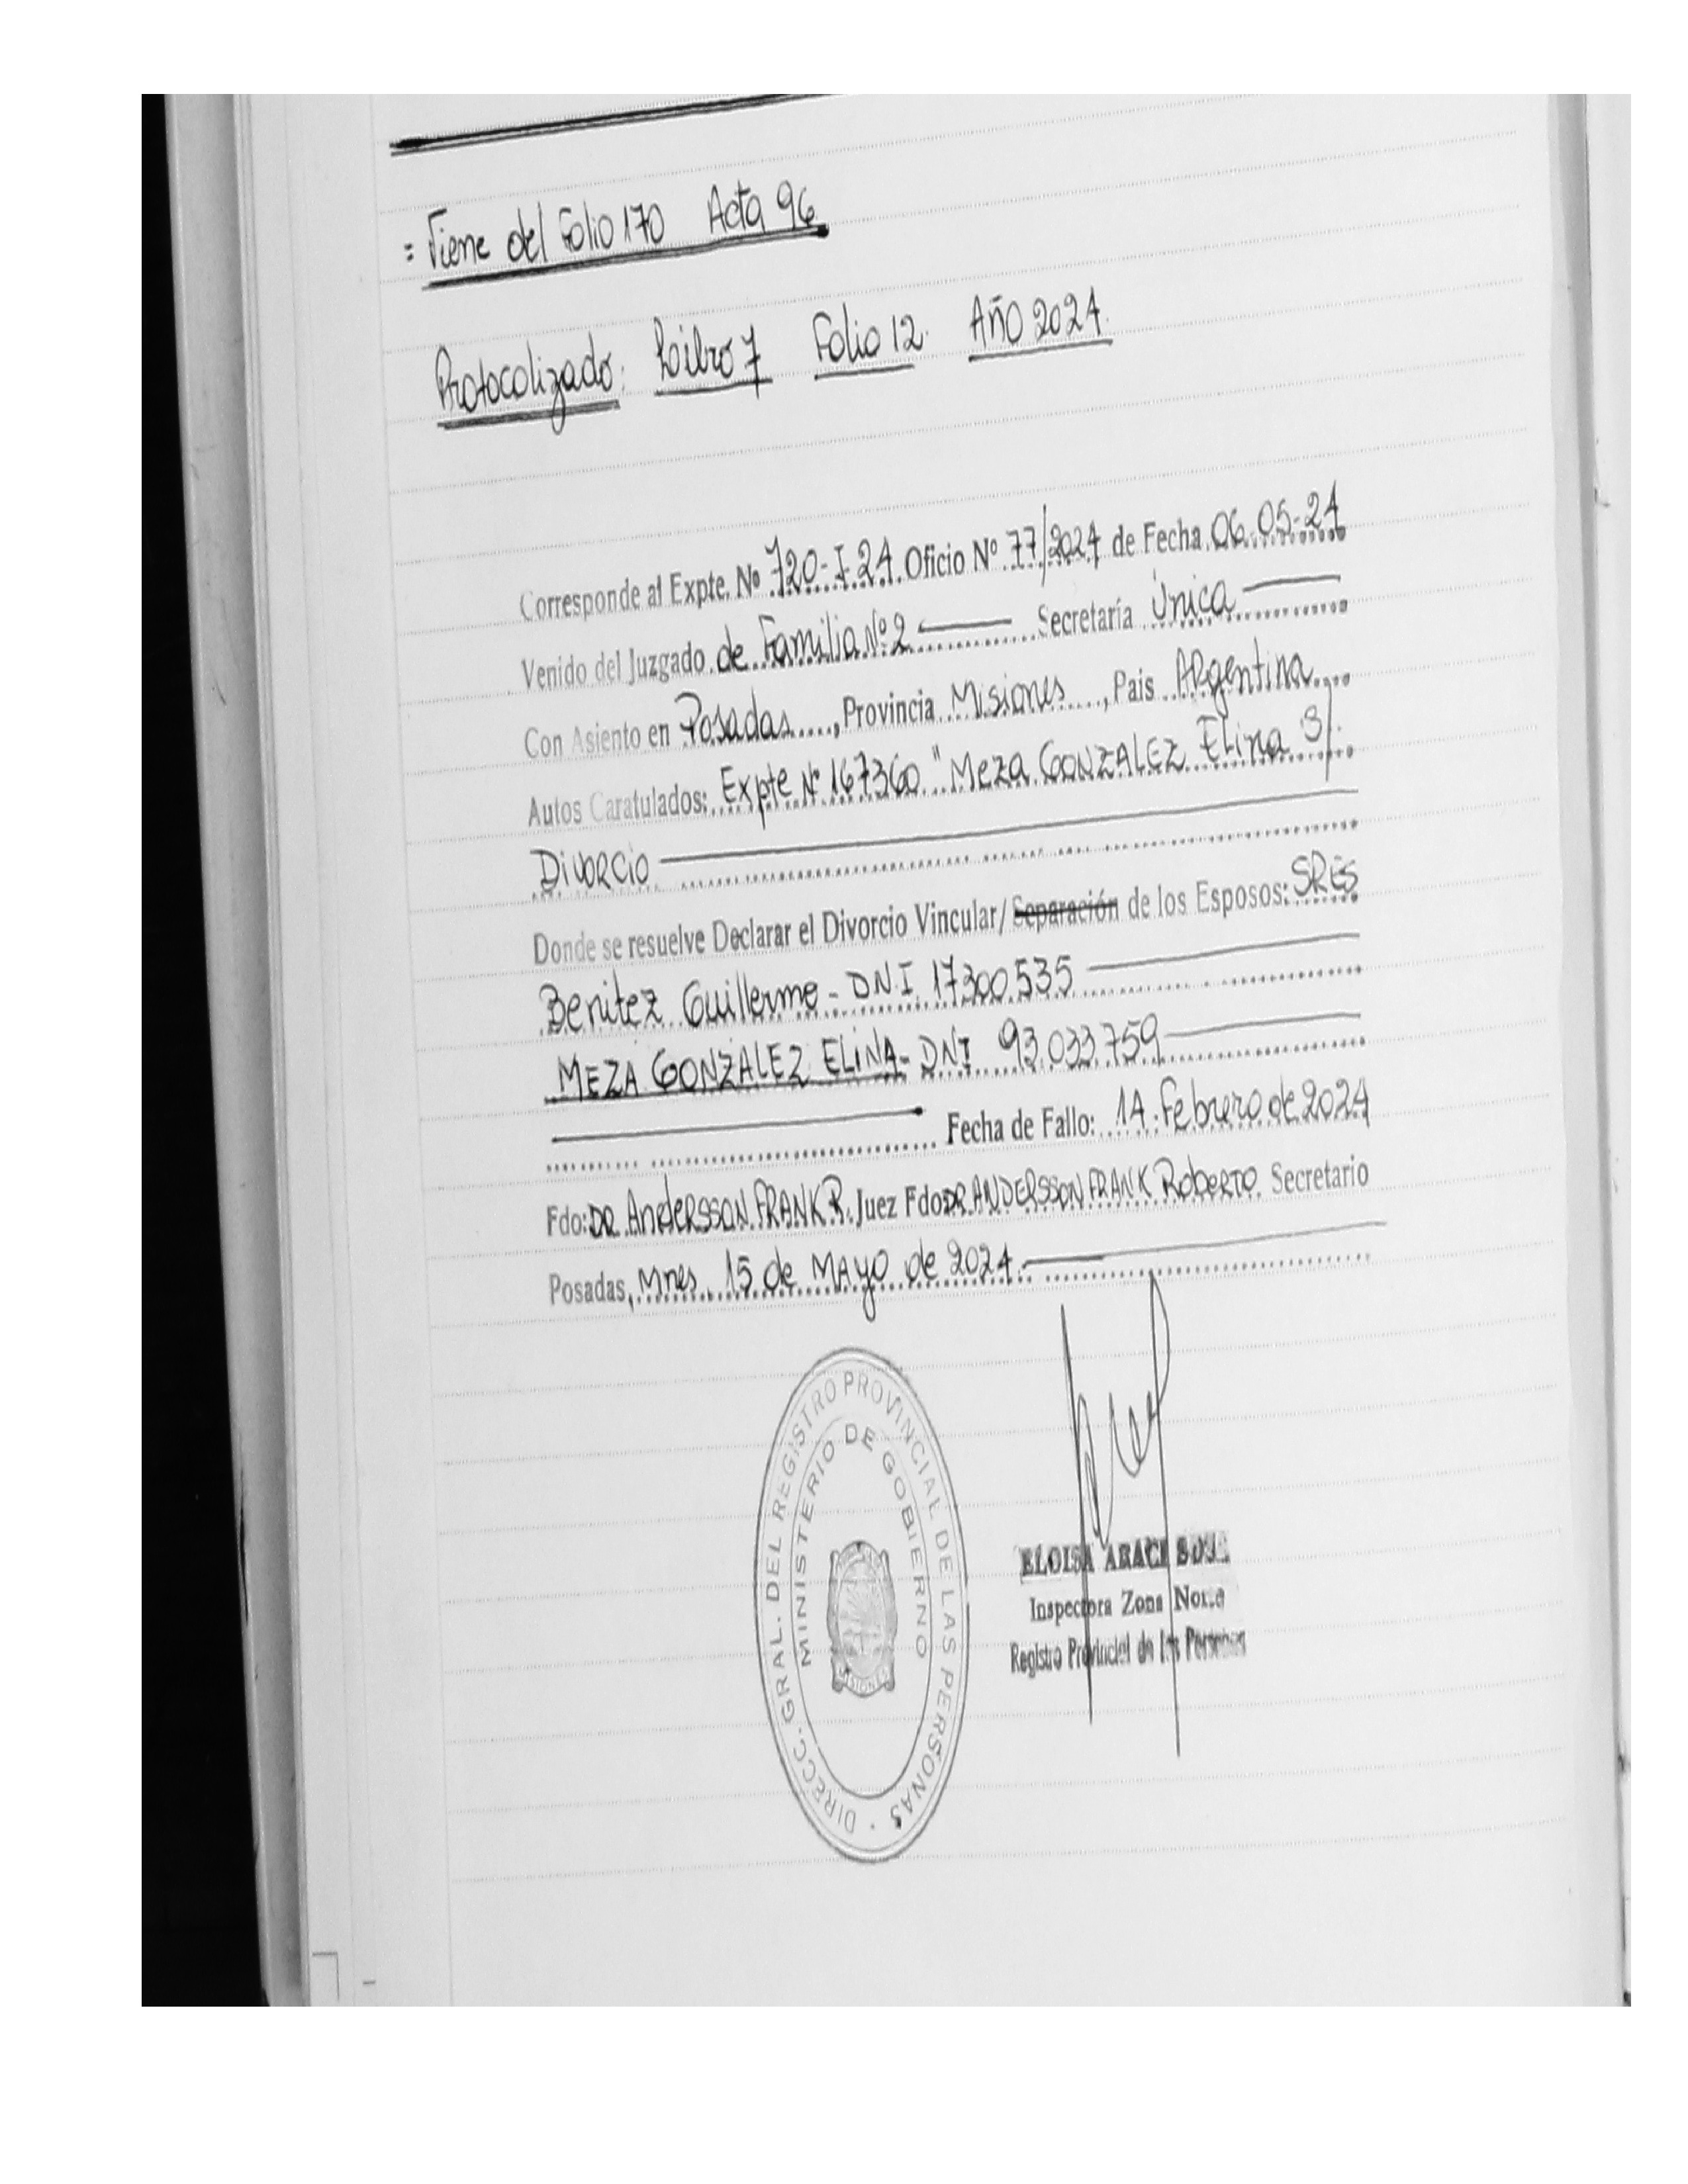 = Viene del Folio 170 Acta 96
Protocolizado: Libro 7 Folio 12. Año 2024.
Corresponde al Expte. Nº 720-I-24. Oficio Nº 77/2024 de Fecha 06.05-24
Venido del Juzgado de Familia Nº 2 Secretaría Única
Con Asiento en Posadas, Provincia Misiones, Pais Argentina
Autos Caratulados: Expte Nº 167360 "Meza GONZALEZ Elina S/.
Divorcio
Donde se resuelve Declarar el Divorcio Vincular/ Separación de los Esposos: SRES
Benitez Guillermo - DN.I. 17300.535
MEZA GONZALEZ ELINA - DNI 93.033.759
Fecha de Fallo: 14. Febrero de 2024
Fdo: DR. AnderSSON FRANK R. Juez Fdo: DR ANDERSSON FRANK Roberto Secretario
Posadas, Mnes. 15 de MAyo de 2024.
DIRECC. GRAL. DEL REGISTRO PROVINCIAL DE LAS PERSONAS
MINISTERIO DE GOBIERNO
MISIONES
ELOISA
Inspectora Zona Norte
Registro Provincial de las Personas